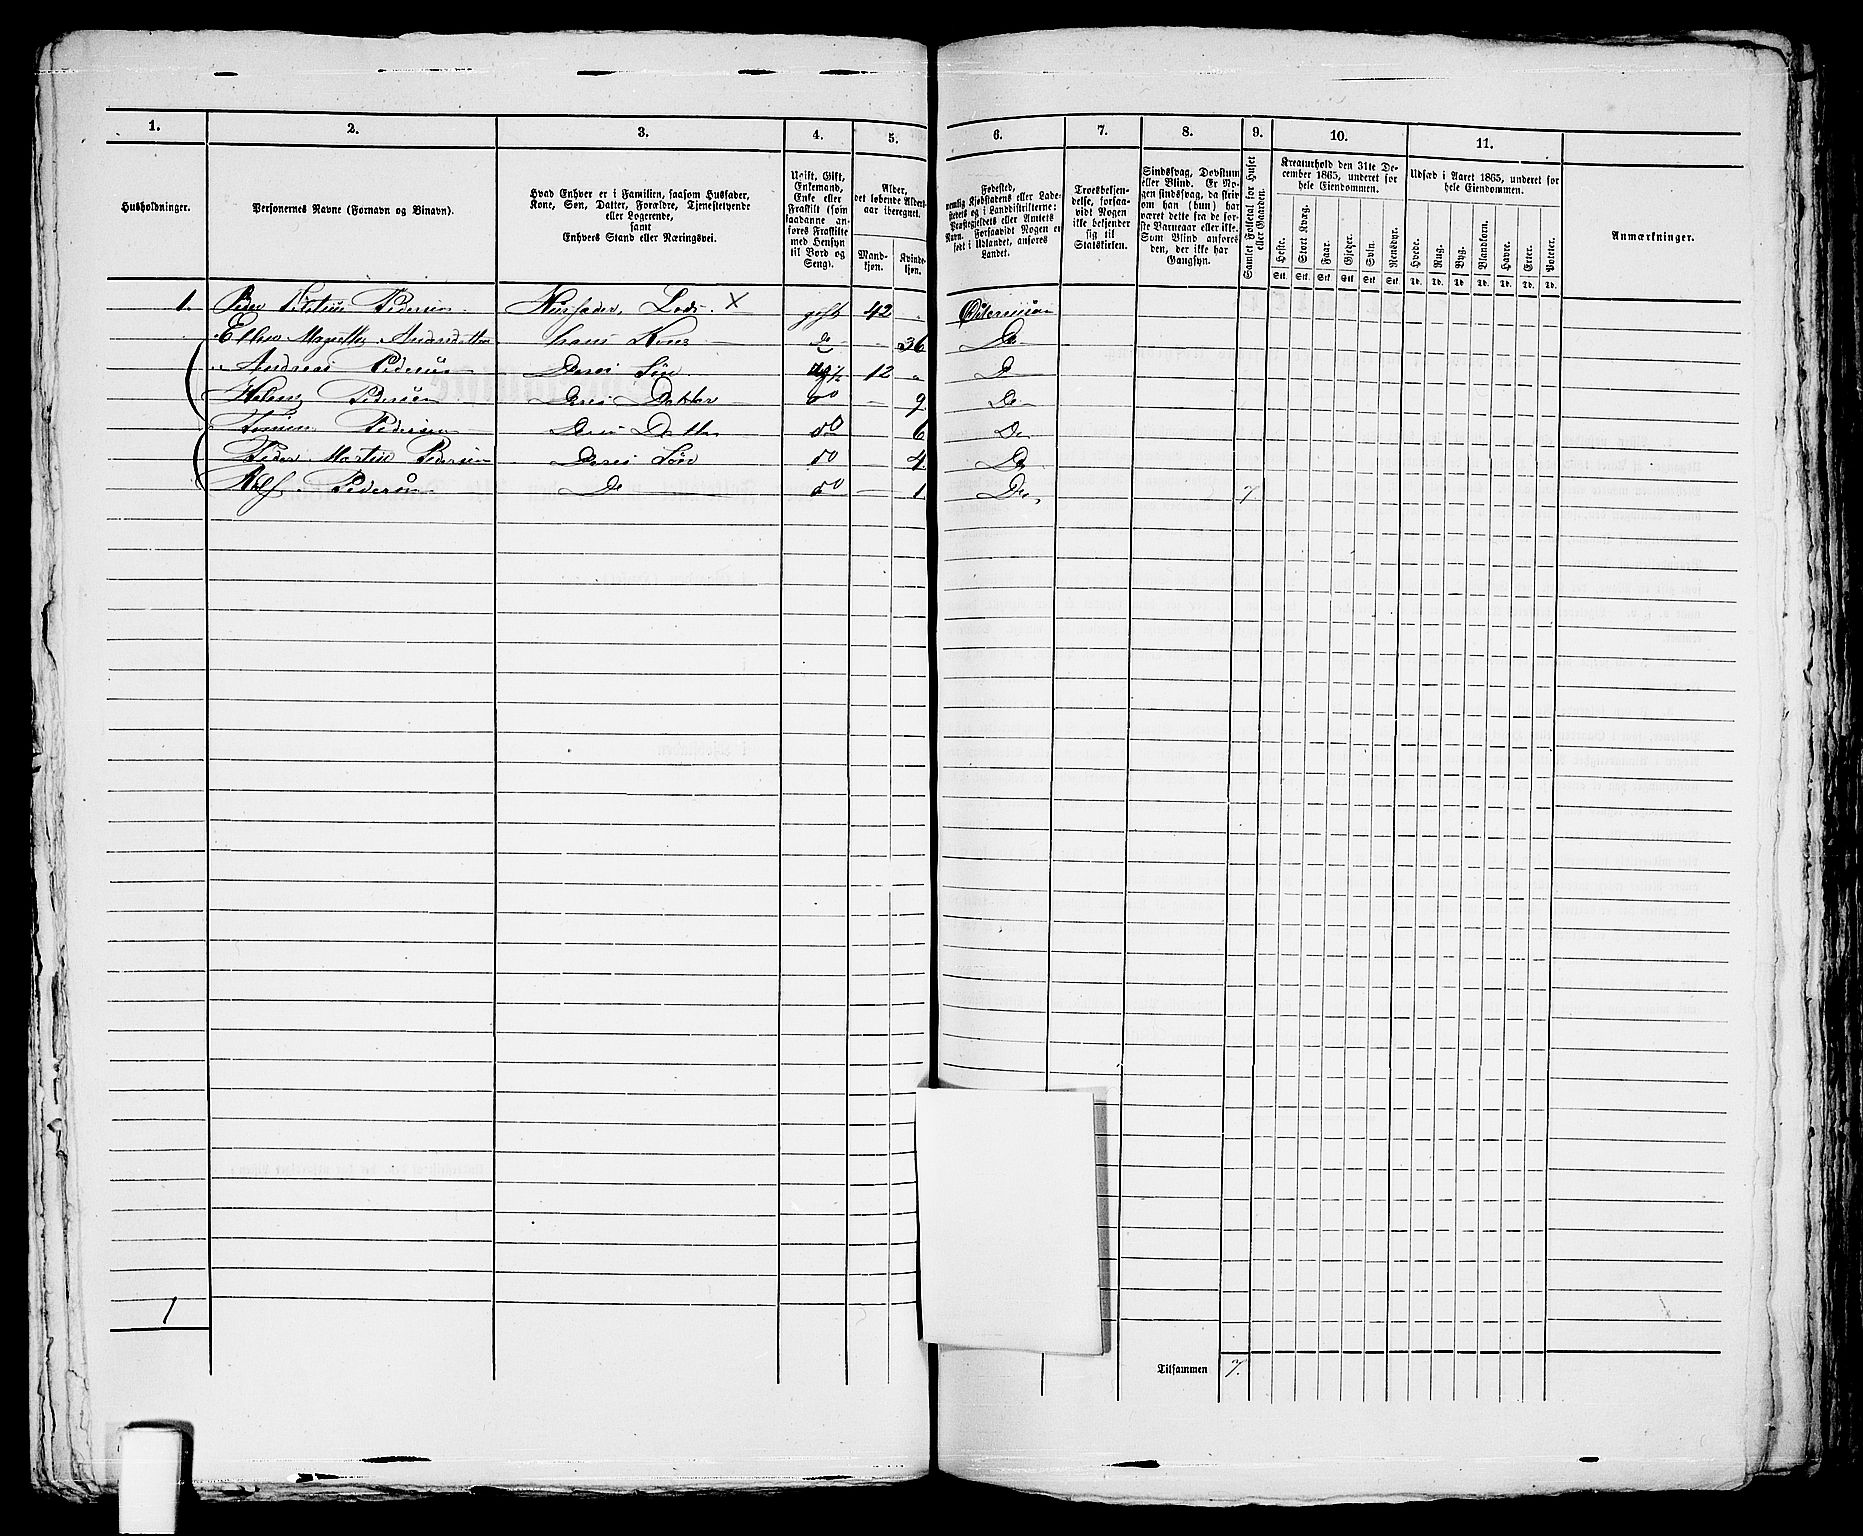 1. 2. 3. 4. 5. 6. 7. 8. 9. 10. 11.
Husholdninger.
Personernes Navne (Fornavn og Binavn).
Hvad Enhver er i Familien, saasom Husfader,
Kone, Søn, Datter, Forældre, Tjenestetyende
eller Logerende,
samt
Enhvers Stand eller Næringsvei.
Ugift, Gift,
Enkemand,
Enke eller
Fraskilt (som
saadanne an-
føres Fraskilte
med Hensyn
til Bord og
Seng).
Alder,
det løbende Alders-
aar iberegnet.
Mand-
kjøn.
Kvinde-
kjøn.
Fødested,
nemlig Kjøbstadens eller Lade-
stedets og i Landdistrikterne:
Præstegjeldets eller Amtets
Navn. Forsaavidt Nogen er
født i Udlandet, anføres
Landet.
Troesbekjen-
delse, forsaa-
vidt Nogen
ikke bekjender
sig til
Statskirken.
Sindssvag, Døvstum
eller Blind. Er No-
gen sindssvag, da skriv
om han (hun) har
været dette fra de før-
ste Barneaar eller ikke.
Som Blind anføres
den, der ikke har
Gangsyn.
Samlet Folketal for Huset
eller Gaarden.
Kreaturhold den 31te De-
cember 1865, underet for
hele Eiendommen.
Heste. Stort Kvæg. Faar. Gjeder. Sviin. Rensdyr.
Stk. Stk. Stk. Stk. Stk. Stk.
Udsæd i Aaret 1865, underet for
hele Eiendommen.
Hvede. Rug. Byg. Blandkorn. Havre. Erter. Poteter.
Td. Td. Td. Td. Td. Td. Td.
Anmærkninger.
1. Peder Pedersen Husfader, Lods. X gift 42 "
Ellen Magrethe Andersdatter hans Kone Do 36 Do
Andreas Pedersøn Deres Søn ug 12 " Do
Helene Pedersøn Deres Datter do 9 Do
Pedersen Deres Datter do 6 Do
Peder Martin Pedersen Deres Søn do 4 Do
Pedersøn Do do 1 Do 7
1
Tilsammen 7.